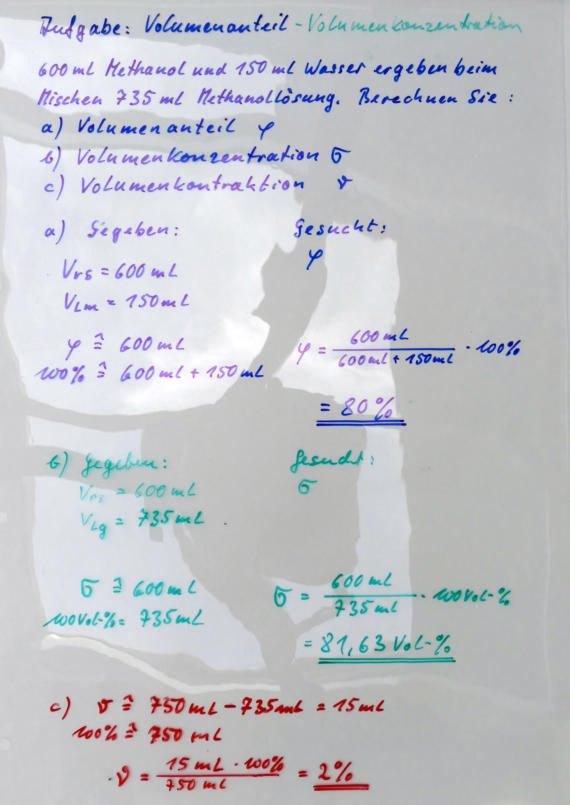 Aufgabe: Volumenanteil - Volumenkonzentration
600 ml Methanol und 150 ml Wasser ergeben beim
Mischen 735 ml Methanollösung. Berechnen Sie:
a) Volumenanteil φ
b) Volumenkonzentration σ
c) Volumenkontraktion ϑ
a) Gegeben: Gesucht:
φ
Vrs = 600 mL
VLm = 150 mL
φ ≙ 600 mL
100% ≙ 600 ml + 150 mL
φ = 600 mL / (600 ml + 150 ml) · 100%
= 80%
b) Gegeben: Gesucht:
Vrs = 600 mL σ
VLg = 735 mL
σ ≙ 600 mL
100 Vol-% = 735 mL
σ = 600 mL / 735 mL · 100 Vol-%
= 81,63 Vol-%
c) ϑ ≙ 750 mL - 735 mL = 15 mL
100% ≙ 750 mL
ϑ = 15 mL · 100% / 750 mL = 2%